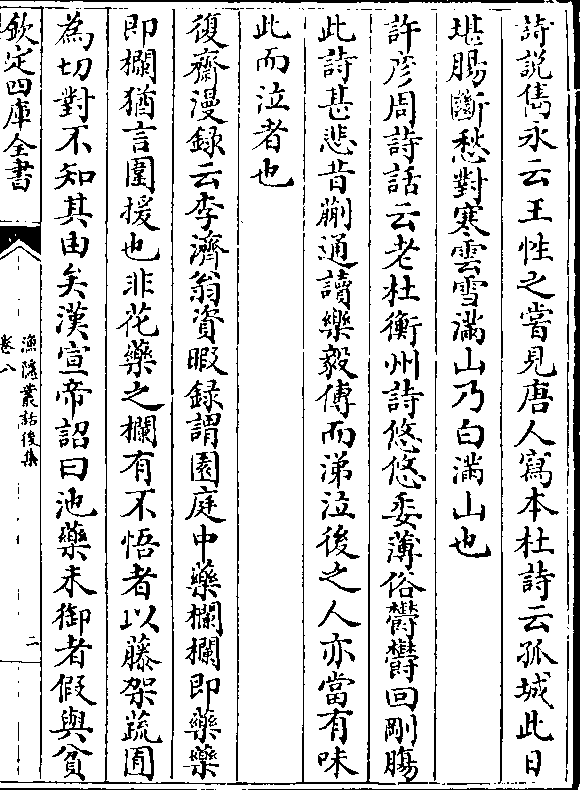 詩説雋永云王性之嘗見唐人寫本杜詩云孤城此日
堪腸斷愁對寒雲雪滿山乃白滿山也
許彦周詩話云老杜衡州詩悠悠委薄俗鬱鬱回剛腸
此詩甚悲昔蒯通讀樂毅傳而涕泣後之人亦當有味
此而泣者也
復齋漫録云李濟翁資暇録謂園庭中藥欄欄即藥藥
即欄猶言圍援也非花藥之欄有不悟者以藤架蔬圃
為切對不知其由矣漢宣帝詔曰池藥未御者假與貧
欽定四庫全書
漁隱叢話後集
卷八
二